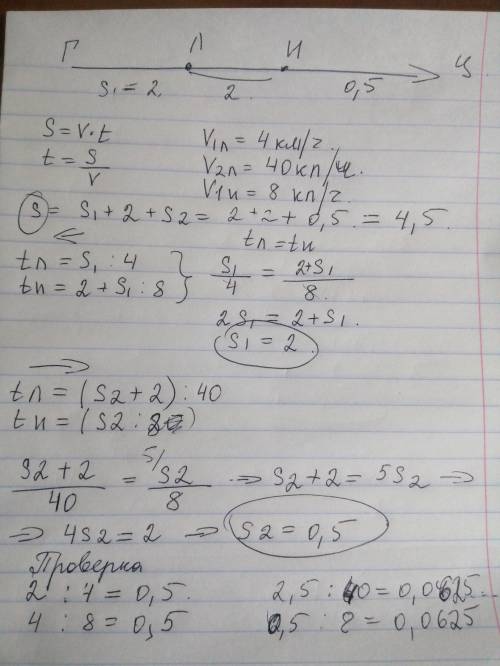 Г Л И Ц
S₁ = 2 2 0,5
S = V·t V₁л = 4 км/г.
t = S/V V₂л = 40 кп/ч.
V₁и = 8 кп/г.
S = S₁ + 2 + S₂ = 2 + 2 + 0,5 = 4,5
← tл = tи
tл = S₁ : 4 } S₁/4 = 2+S₁/8
tи = 2 + S₁ : 8
2S₁ = 2 + S₁.
S₁ = 2
→
tл = (S2 + 2) : 40
tи = (S2 : 8)
S2 + 2/40 = 5/ S2/8 ⇒ S2 + 2 = 5S2 ⇒
⇒ 4S2 = 2 ⇒ S2 = 0,5
Проверка
2 : 4 = 0,5. 2,5 : 40 = 0,0625
4 : 8 = 0,5 0,5 : 8 = 0,0625